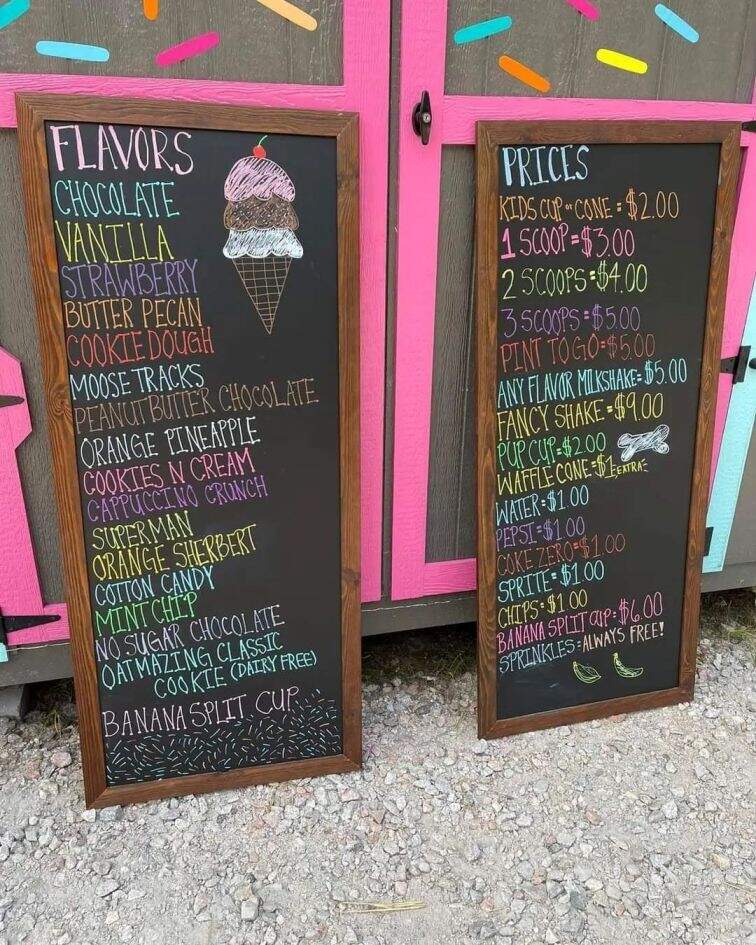 FLAVORS
CHOCOLATE
VANILLA
STRAWBERRY
BUTTER PECAN
COOKIE DOUGH
MOOSE TRACKS
PEANUT BUTTER CHOCOLATE
ORANGE PINEAPPLE
COOKIES N CREAM
CAPPUCCINO CRUNCH
SUPERMAN
ORANGE SHERBERT
COTTON CANDY
MINT CHIP
NO SUGAR CHOCOLATE
OATMAZING CLASSIC
COOKIE (DAIRY FREE)
BANANA SPLIT CUP
PRICES
KIDS CUP or CONE = $2.00
1 SCOOP = $3.00
2 SCOOPS = $4.00
3 SCOOPS = $5.00
PINT TO GO = $5.00
ANY FLAVOR MILKSHAKE = $5.00
FANCY SHAKE = $9.00
PUP CUP = $2.00
WAFFLE CONE = $1 EXTRA
WATER = $1.00
PEPSI = $1.00
COKE ZERO = $1.00
SPRITE = $1.00
CHIPS = $1.00
BANANA SPLIT CUP = $6.00
SPRINKLES = ALWAYS FREE!